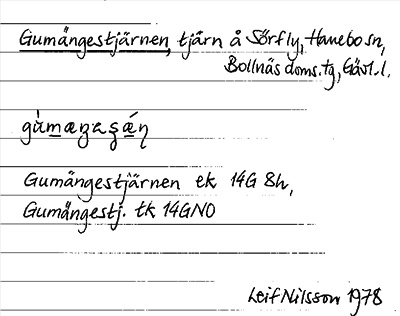 Gumängestjärnen, tjärn å Sörfly, Hanebo sn,
Bollnäs doms.tg, Gävl.l.
gùmæŋaʂǽɳ
Gumängestjärnen ek 14G 8h,
Gumängestj. tk 14GNO
Leif Nilsson 1978